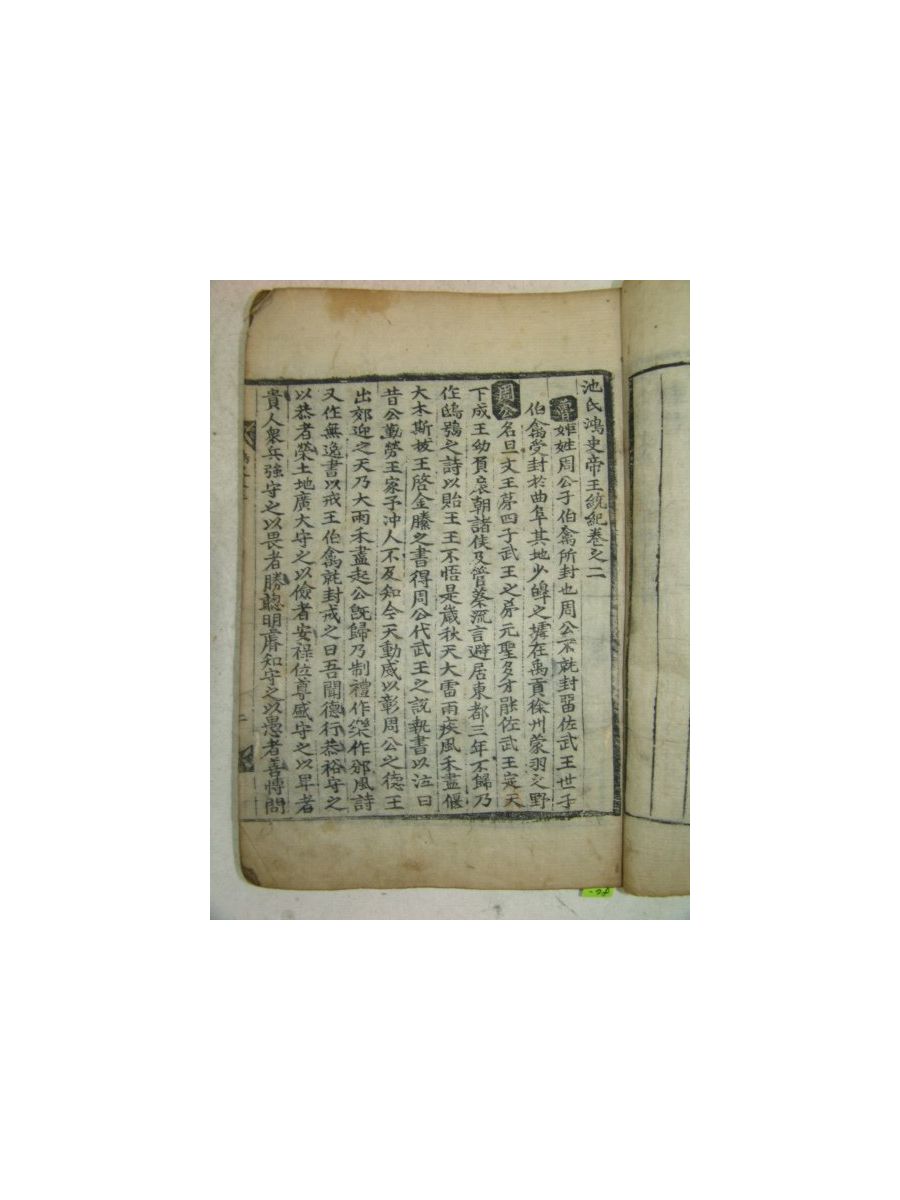 池氏鴻史帝王統紀卷之二
魯 姬姓周公子伯禽所封也周公不就封留佐武王世子
伯禽受封於曲阜其地少皥之墟在禹貢徐州蒙羽之野
周公 名旦文王苐四子武王之弟元聖多才能佐武王定天
下成王幼負扆朝諸侯及管蔡流言避居東都三年不歸乃
作鴟鴞之詩以貽王王不悟是歲秋天大雷雨疾風禾盡偃
大木斯拔王啓金縢之書得周公代武王之說執書以泣曰
昔公勤勞王家予冲人不及知今天動威以彰周公之德王
出郊迎之天乃大雨禾盡起公旣歸乃制禮作樂作豳風詩
又作無逸書以戒王伯禽就封戒之曰吾聞德行恭裕守之
以恭者榮土地廣大守之以儉者安祿位尊盛守之以卑者
貴人衆兵強守之以畏者勝聦明睿知守之以愚者善愽聞